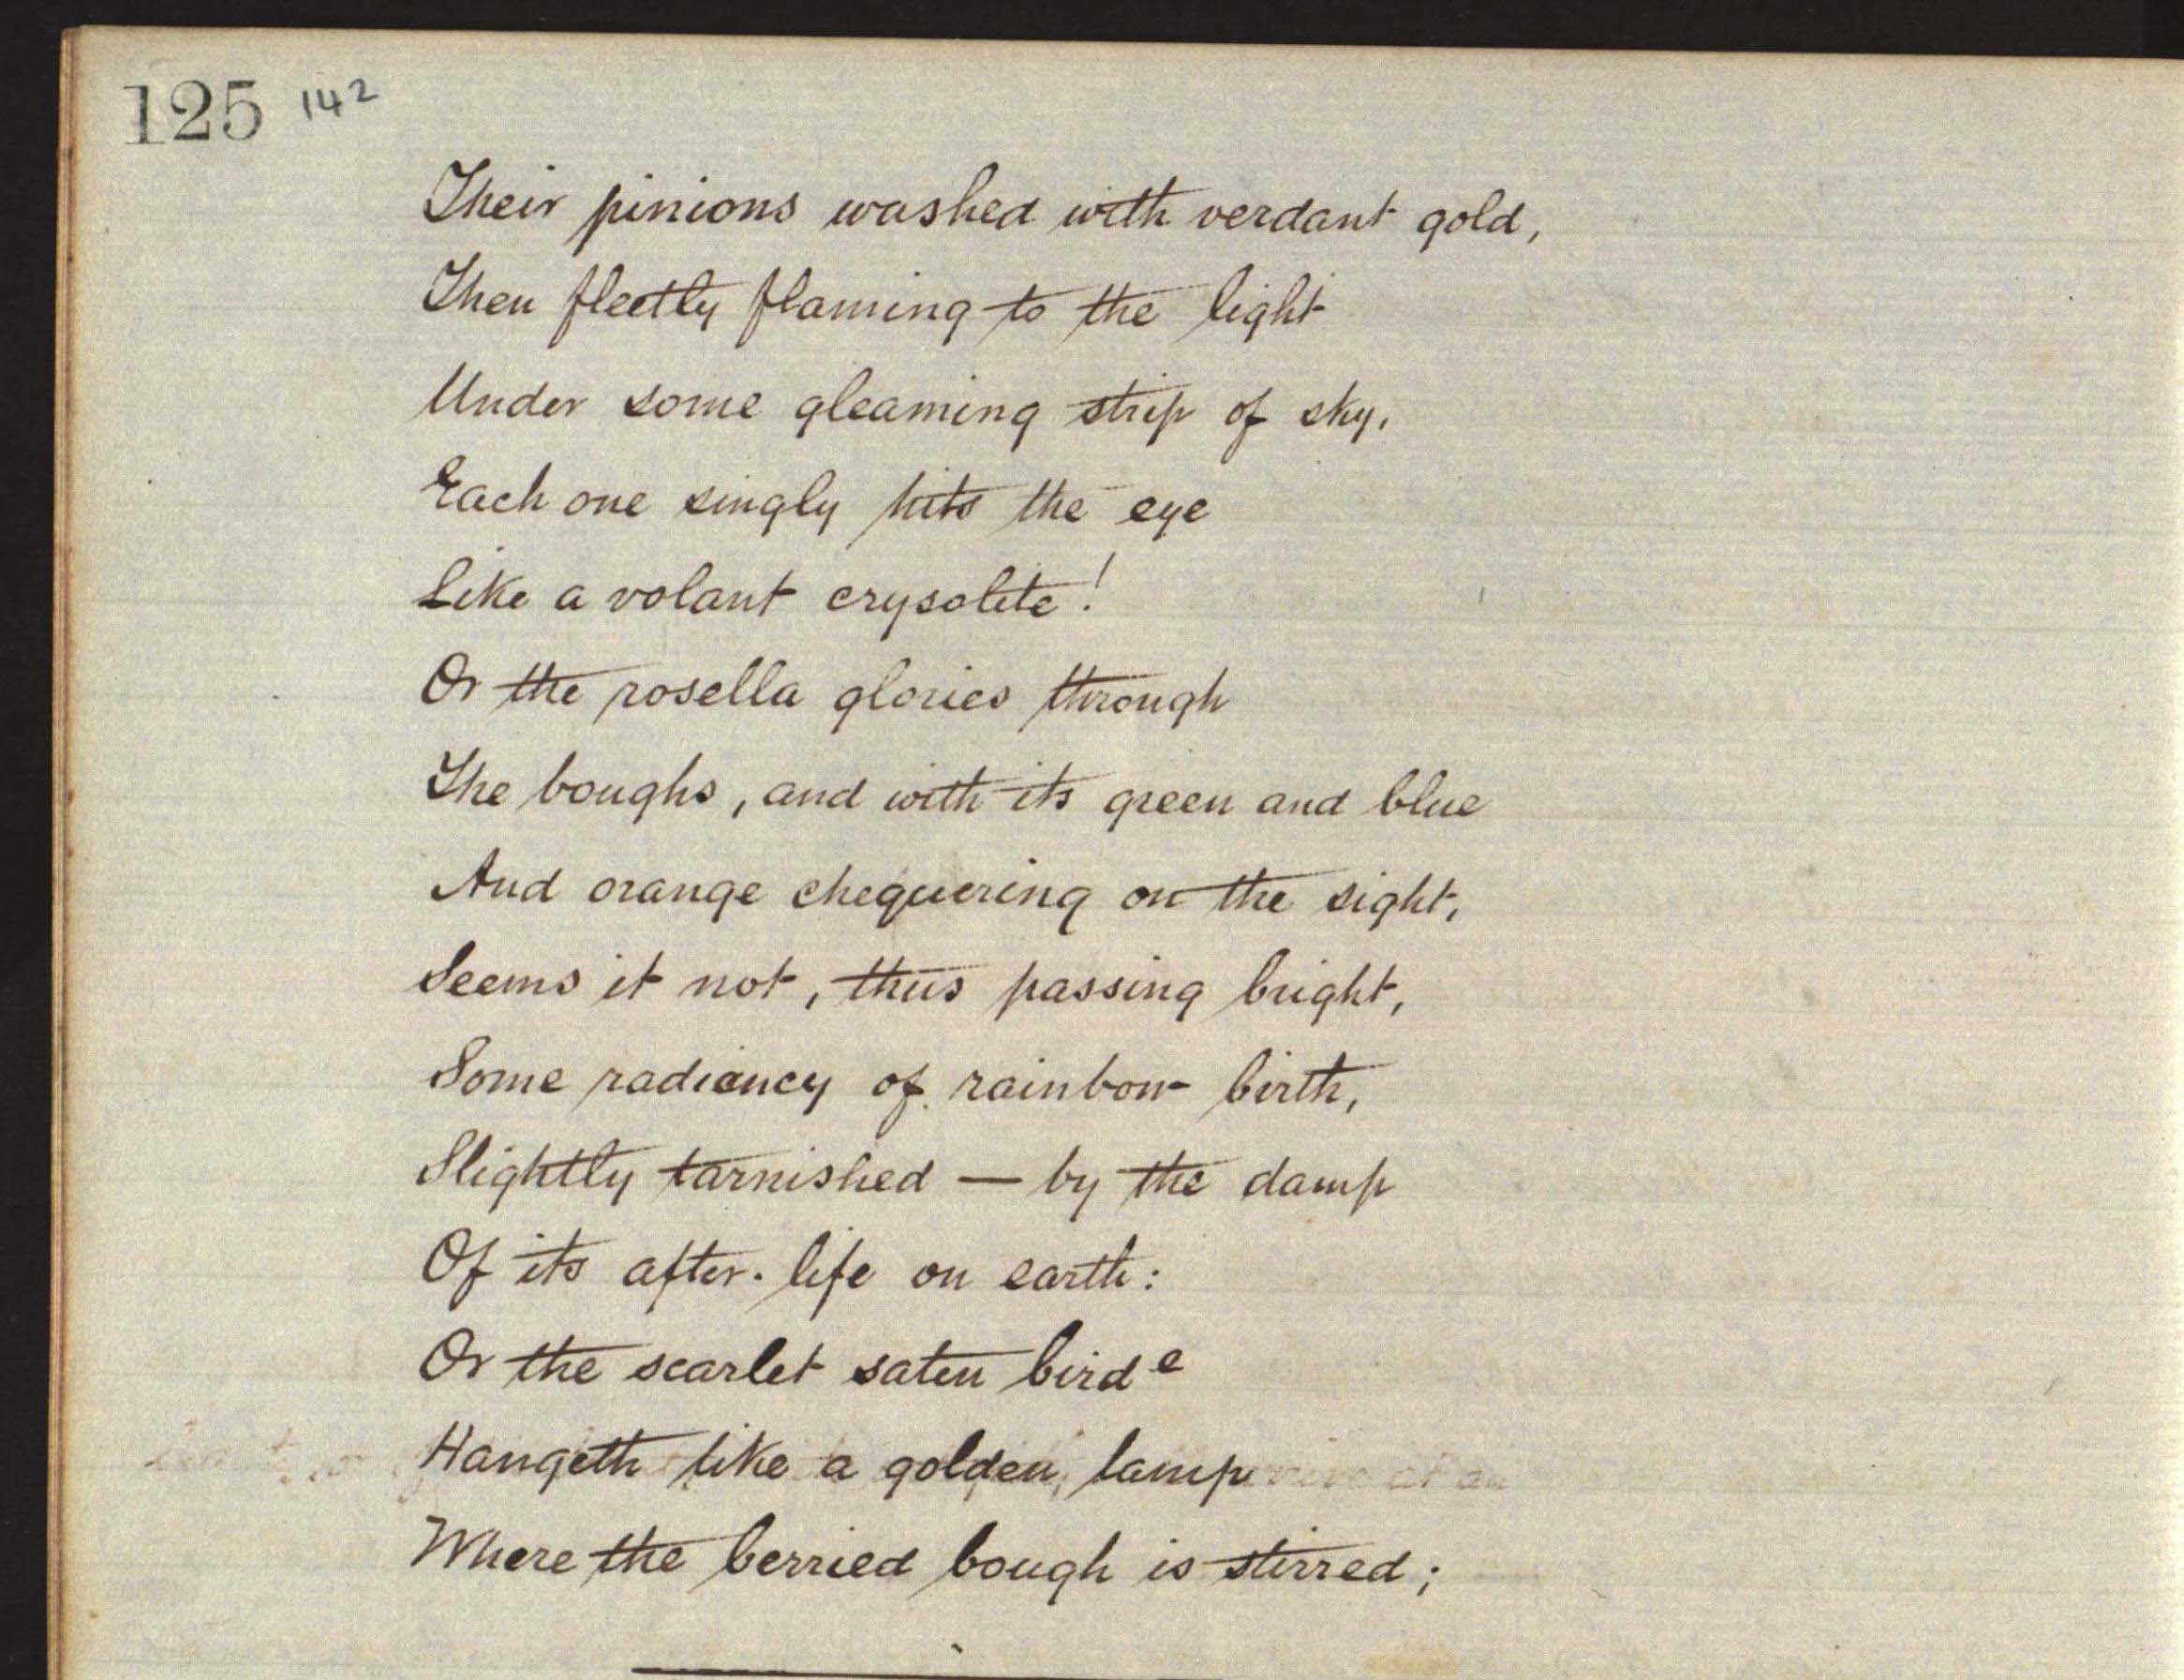 125 142
Their pinions washed with verdant gold,
Then fleetly flaming to the light
Under some gleaming strip of sky,
Each one singly hits the eye
Like a volant crysolite!
Or the rosella glories through
The boughs, and with its green and blue
And orange chequering on the sight,
Seems it not, thus passing bright,
Some radiancy of rainbow birth,
Slightly tarnished — by the damp
Of its after-life on earth:
Or the scarlet saten bird e
Hangeth like a golden lamp
Where the berried bough is stirred;